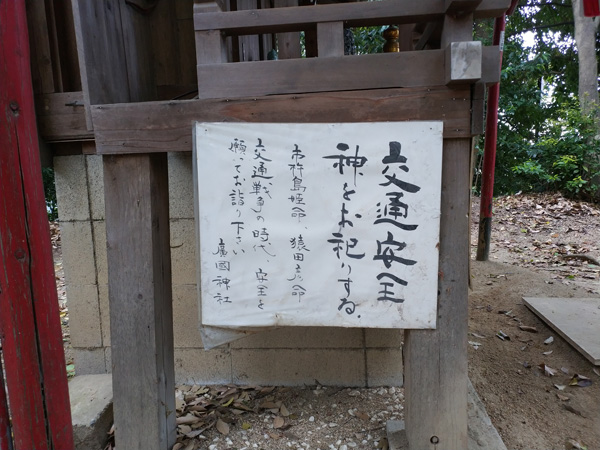 交通安全
神をお祀りする.
市杵島姫命、猿田彦命
交通戦争の時代 安全を
願ってお詣り下さい
廣國神社